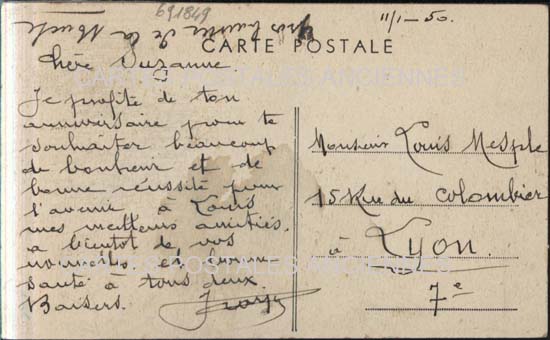 691849
11/1-50.
CARTE POSTALE
CARTES POSTALES ANCIENNES
Chère Suzanne
Je profite de ton
anniversaire pour te
souhaiter beaucoup
de bonheur et de
bonne réussite pour
l'avenir à Louis
mes meilleurs amitiés.
a bientôt de vos
nouvelles et bonne
santé à tous deux
Baisers.
Monsieur Louis Mesple
15 Rue du Colombier
à Lyon
7e
CARTES POSTALES ANCIENNES